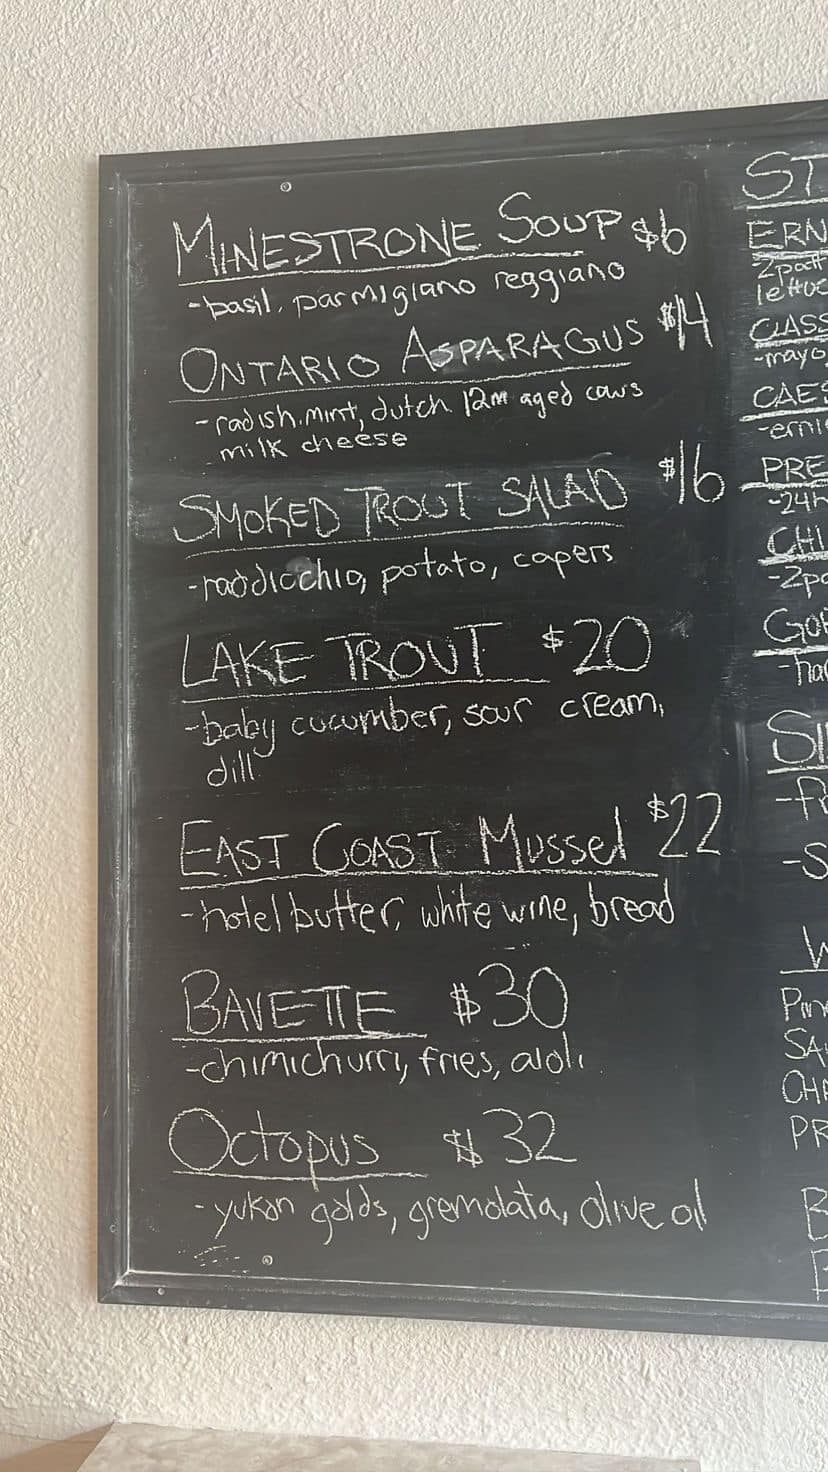 MINESTRONE SOUP $6
-basil, parmigiano reggiano
ONTARIO ASPARAGUS $14
-radish, mint, dutch 12m aged cows
milk cheese
SMOKED TROUT SALAD $16
-raddicchio, potato, capers
LAKE TROUT $20
-baby cucumber, sour cream,
dill
EAST COAST Mussel $22
-hotel butter, white wine, bread
BAVETTE $30
-chimichurri, fries, aioli
Octopus $32
-yukon golds, gremolata, olive oil
ST
ERN
lettuc
CLASS
-mayo
CAES
-erni
PRE
-24h
CHI
-2po
GOR
-ha
SI
-S
W
Pin
SA
CHA
PR
B